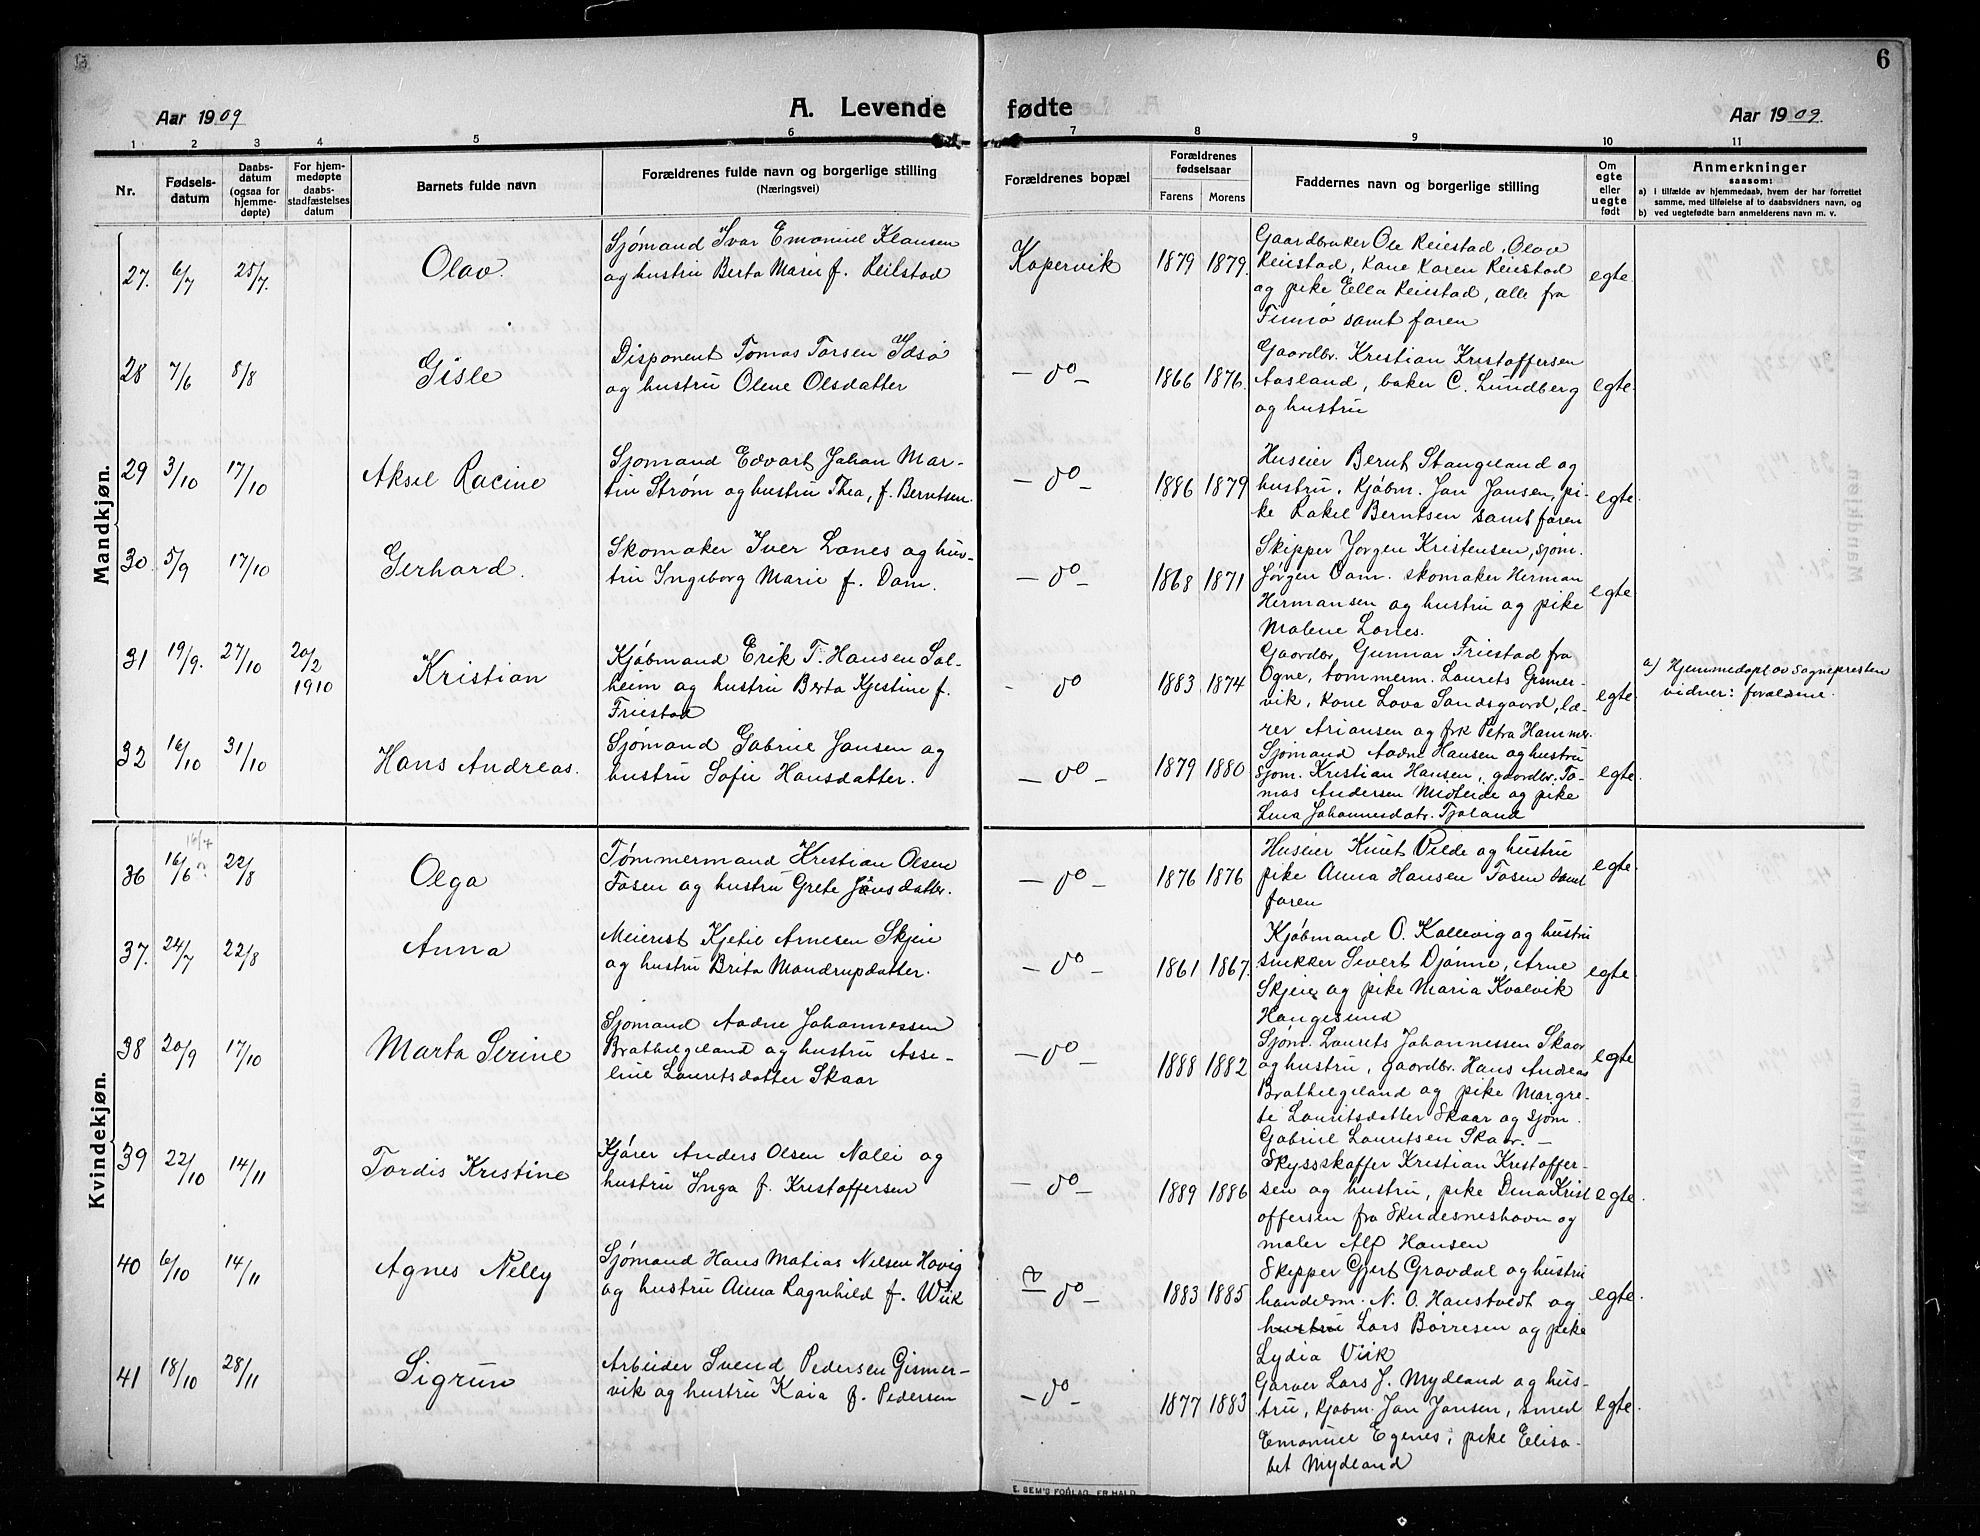 6
Aar 1909
A. Levende fødte
Aar 1909
1 2 3 4 5 6 7 8 9 10 11
Nr.
Fødsels-
datum
Daabs-
datum
(ogsaa for
hjemme-
døpte)
For hjem-
medøpte
daabs-
stadfæstelses
datum
Barnets fulde navn
Forældrenes fulde navn og borgerlige stilling
(Næringsvei)
Forældrenes bopæl
Forældrenes
fødselsaar
Farens Morens
Faddernes navn og borgerlige stilling
Om
egte
eller
uegte
født
Anmerkninger
saasom:
a) i tilfælde av hjemmedaab, hvem der har forrettet
samme, med tilføielse af to daabsvidners navn, og
b) ved uegtefødte barn anmelderens navn m. v.
Mandkjøn.
27. 6/7 25/7. Olav.
Sjømand Ivar Emanuel Klausen
og hustru Berta Marie f. Reilstad
Kopervik 1879 1879.
Gaardbruker Ole Reiestad, Olav
Reiestad, Kone Karen Reiestad
og pike Ella Reiestad, alle fra
Finnø samt faren
egte.
28 7/6 8/8 Gisle
Disponent Tomas Torsen Idsø
og hustru Olene Olsdatter
- do - 1866 1876.
Gaardbr. Kristian Kristoffersen
Aasland, baker C. Lundberg
og hustru
egte.
29 3/10 17/10 Aksel Racine
Sjømand Edvart Johan Mar-
tin Strøm og hustru Thea, f. Berntsen.
- do - 1886 1879
Huseier Bernt Stangeland og
hustru, Kjøbm. Jan Jansen, pi-
ke Rakel Berntsen samt faren
egte.
30 5/9 17/10 Gerhard.
Skomaker Iver Lanes og hus-
tru Ingeborg Marie f. Dam.
- do - 1868 1871
Skipper Jørgen Kristensen, sjøm.
Jørgen Dam. skomaker Herman
Hermansen og hustru og pike
Malene Lanes.
egte.
31 19/9. 27/10 20/2 1910 Kristian
Kjøbmand Erik T. Hansen Sol-
heim og hustru Berta Kjestine f.
Friestad
- do 1883 1874
Gaardbr. Gunnar Friestad fra
Ogne, tommerm. Laurets Gismer-
vik, Kone Lava Sandsgaard, læ-
rer Ariansen og frk Petra Hammer.
egte.
a) Hjemmedøpt av Sognepresten
vidner: forældrene.
32 16/10 31/10 Hans Andreas.
Sjømand Gabriel Jansen og
hustru Sofie Hansdatter.
- do - 1879 1880
Sjømand Aadne Hansen og hustru
Sjøm. Kristian Hansen, gaardbr. To-
mas Andersen Midteide og pike
Lina Johannesdatr. Tjøland
egte.
Kvindekjøn.
36 16/6 16/7 22/8 Olga
Tømmermand Kristian Olsen
Fosen og hustru Grete Jønsdatter.
- do - 1876 1876
Huseier Knut Vilde og hustru
pike Anna Hansen Fosen samt
faren
egte.
37. 24/7 22/8 Anna
Meierist Kjetil Arnesen Skjeie
og hustru Brita Mandrupdatter.
- do - 1861 1867.
Kjøbmand O. Kallevig og hustru
snikker Sivert Djønne, Arne
Skjeie og pike Maria Kvalvik
Haugesund
egte.
38 20/9 17/10 Marta Serine
Sjømand Aadne Johannessen
Brathelgeland og hustru Asse-
line Lauritsdatter Skaar
- do - 1888 1882
Sjøm. Laurets Johannessen Skaar
og hustru, gaardbr. Hans Andreas
Brathelgeland og pike Margre-
te Lauritsdatter Skaar og sjøm.
Gabriel Lauritsen Skaar. -
egte
39 22/10 14/11 Tordis Kristine
Kjører Anders Olsen Nalei og
hustru Inga f. Kristoffersen
- do - 1889 1886
Skyssskaffer Kristian Kristoffer-
sen og hustru, pike Dina Krist
offersen fra Skudesneshavn og
maler Alf Hansen
egte.
40 6/10 14/11 Agnes Nelly
Sjømand Hans Matias Nilsen Hovig
og hustru Anna Ragnhild f. Wiik
- do - 1883 1885
Skipper Gjert Gravdal og hustru
handelsm. N. O. Haustveit og
hustru Lars Børresen og pike
Lydia Viik
egte.
41 18/10 28/11 Sigrun
Arbeider Svend Pedersen Gismer-
vik og hustru Kaia f. Pedersen
- do - 1877 1883
Garver Lars J. Mydland og hus-
tru, Kjøbm. Jan Jansen, smed
Emanuel Egenes, pike Elisa-
bet Mydland
egte.
E. SEM'S FORLAG, FR.HALD.